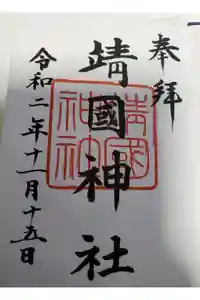 奉拝
靖國神社
令和二年十一月十五日
靖國
神社